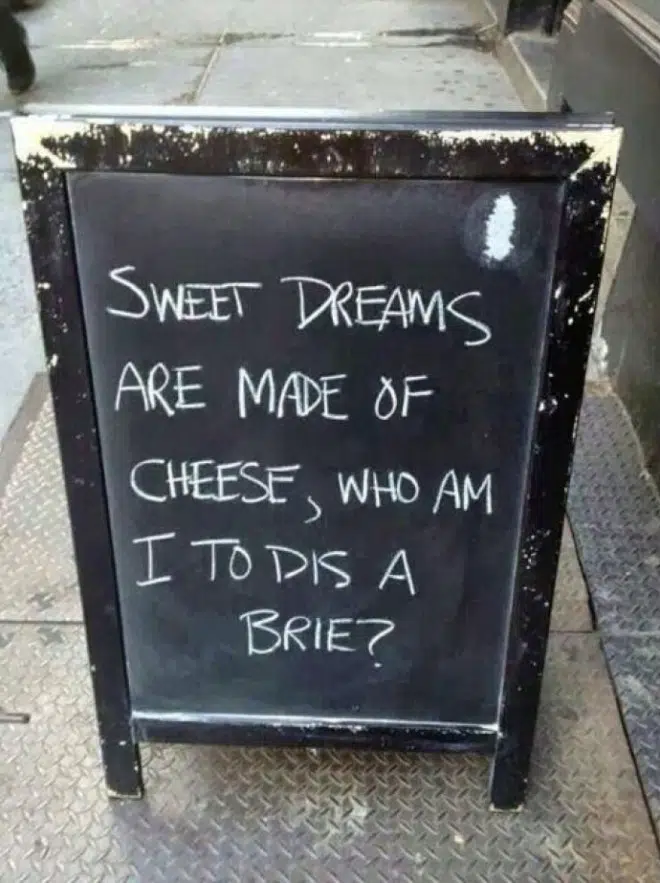 SWEET DREAMS
ARE MADE OF
CHEESE, WHO AM
I TO DIS A
BRIE?